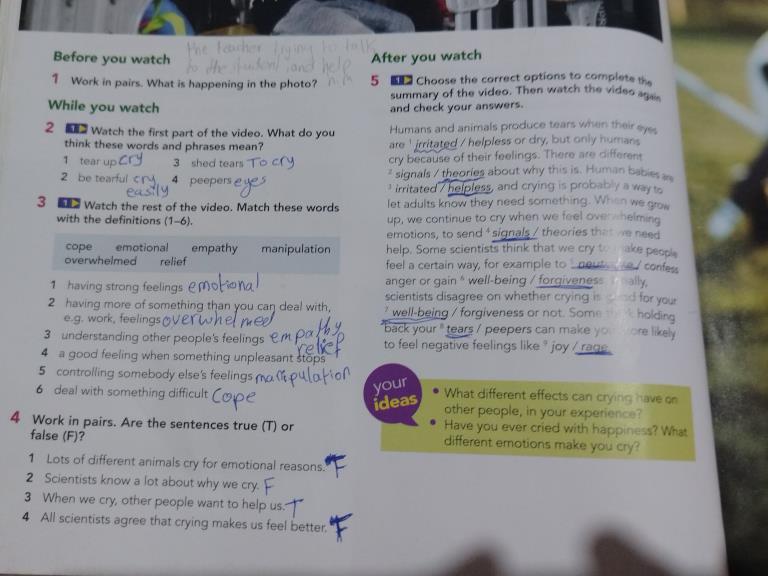 Before you watch
the teacher trying to talk
to the student and help
1 Work in pairs. What is happening in the photo?
While you watch
2 1 Watch the first part of the video. What do you
think these words and phrases mean?
1 tear up cry 3 shed tears To cry
2 be tearful cry 4 peepers eyes
easily
3 1 Watch the rest of the video. Match these words
with the definitions (1–6).
cope emotional empathy manipulation
overwhelmed relief
1 having strong feelings emotional
2 having more of something than you can deal with,
e.g. work, feelings overwhelmed
3 understanding other people's feelings empathy
4 a good feeling when something unpleasant stops relief
5 controlling somebody else's feelings manipulation
6 deal with something difficult Cope
4 Work in pairs. Are the sentences true (T) or
false (F)?
1 Lots of different animals cry for emotional reasons. F
2 Scientists know a lot about why we cry. F
3 When we cry, other people want to help us. T
4 All scientists agree that crying makes us feel better. F
After you watch
5 1 Choose the correct options to complete the
summary of the video. Then watch the video again
and check your answers.
Humans and animals produce tears when their eyes
are 1 irritated / helpless or dry, but only humans
cry because of their feelings. There are different
2 signals / theories about why this is. Human babies are
3 irritated / helpless, and crying is probably a way to
let adults know they need something. When we grow
up, we continue to cry when we feel overwhelming
emotions, to send 4 signals / theories that we need
help. Some scientists think that we cry to make people
feel a certain way, for example to 5 / confess
anger or gain 6 well-being / forgiveness. Finally,
scientists disagree on whether crying is good for your
7 well-being / forgiveness or not. Some think holding
back your 8 tears / peepers can make you more likely
to feel negative feelings like 9 joy / rage.
your
ideas
• What different effects can crying have on
other people, in your experience?
• Have you ever cried with happiness? What
different emotions make you cry?